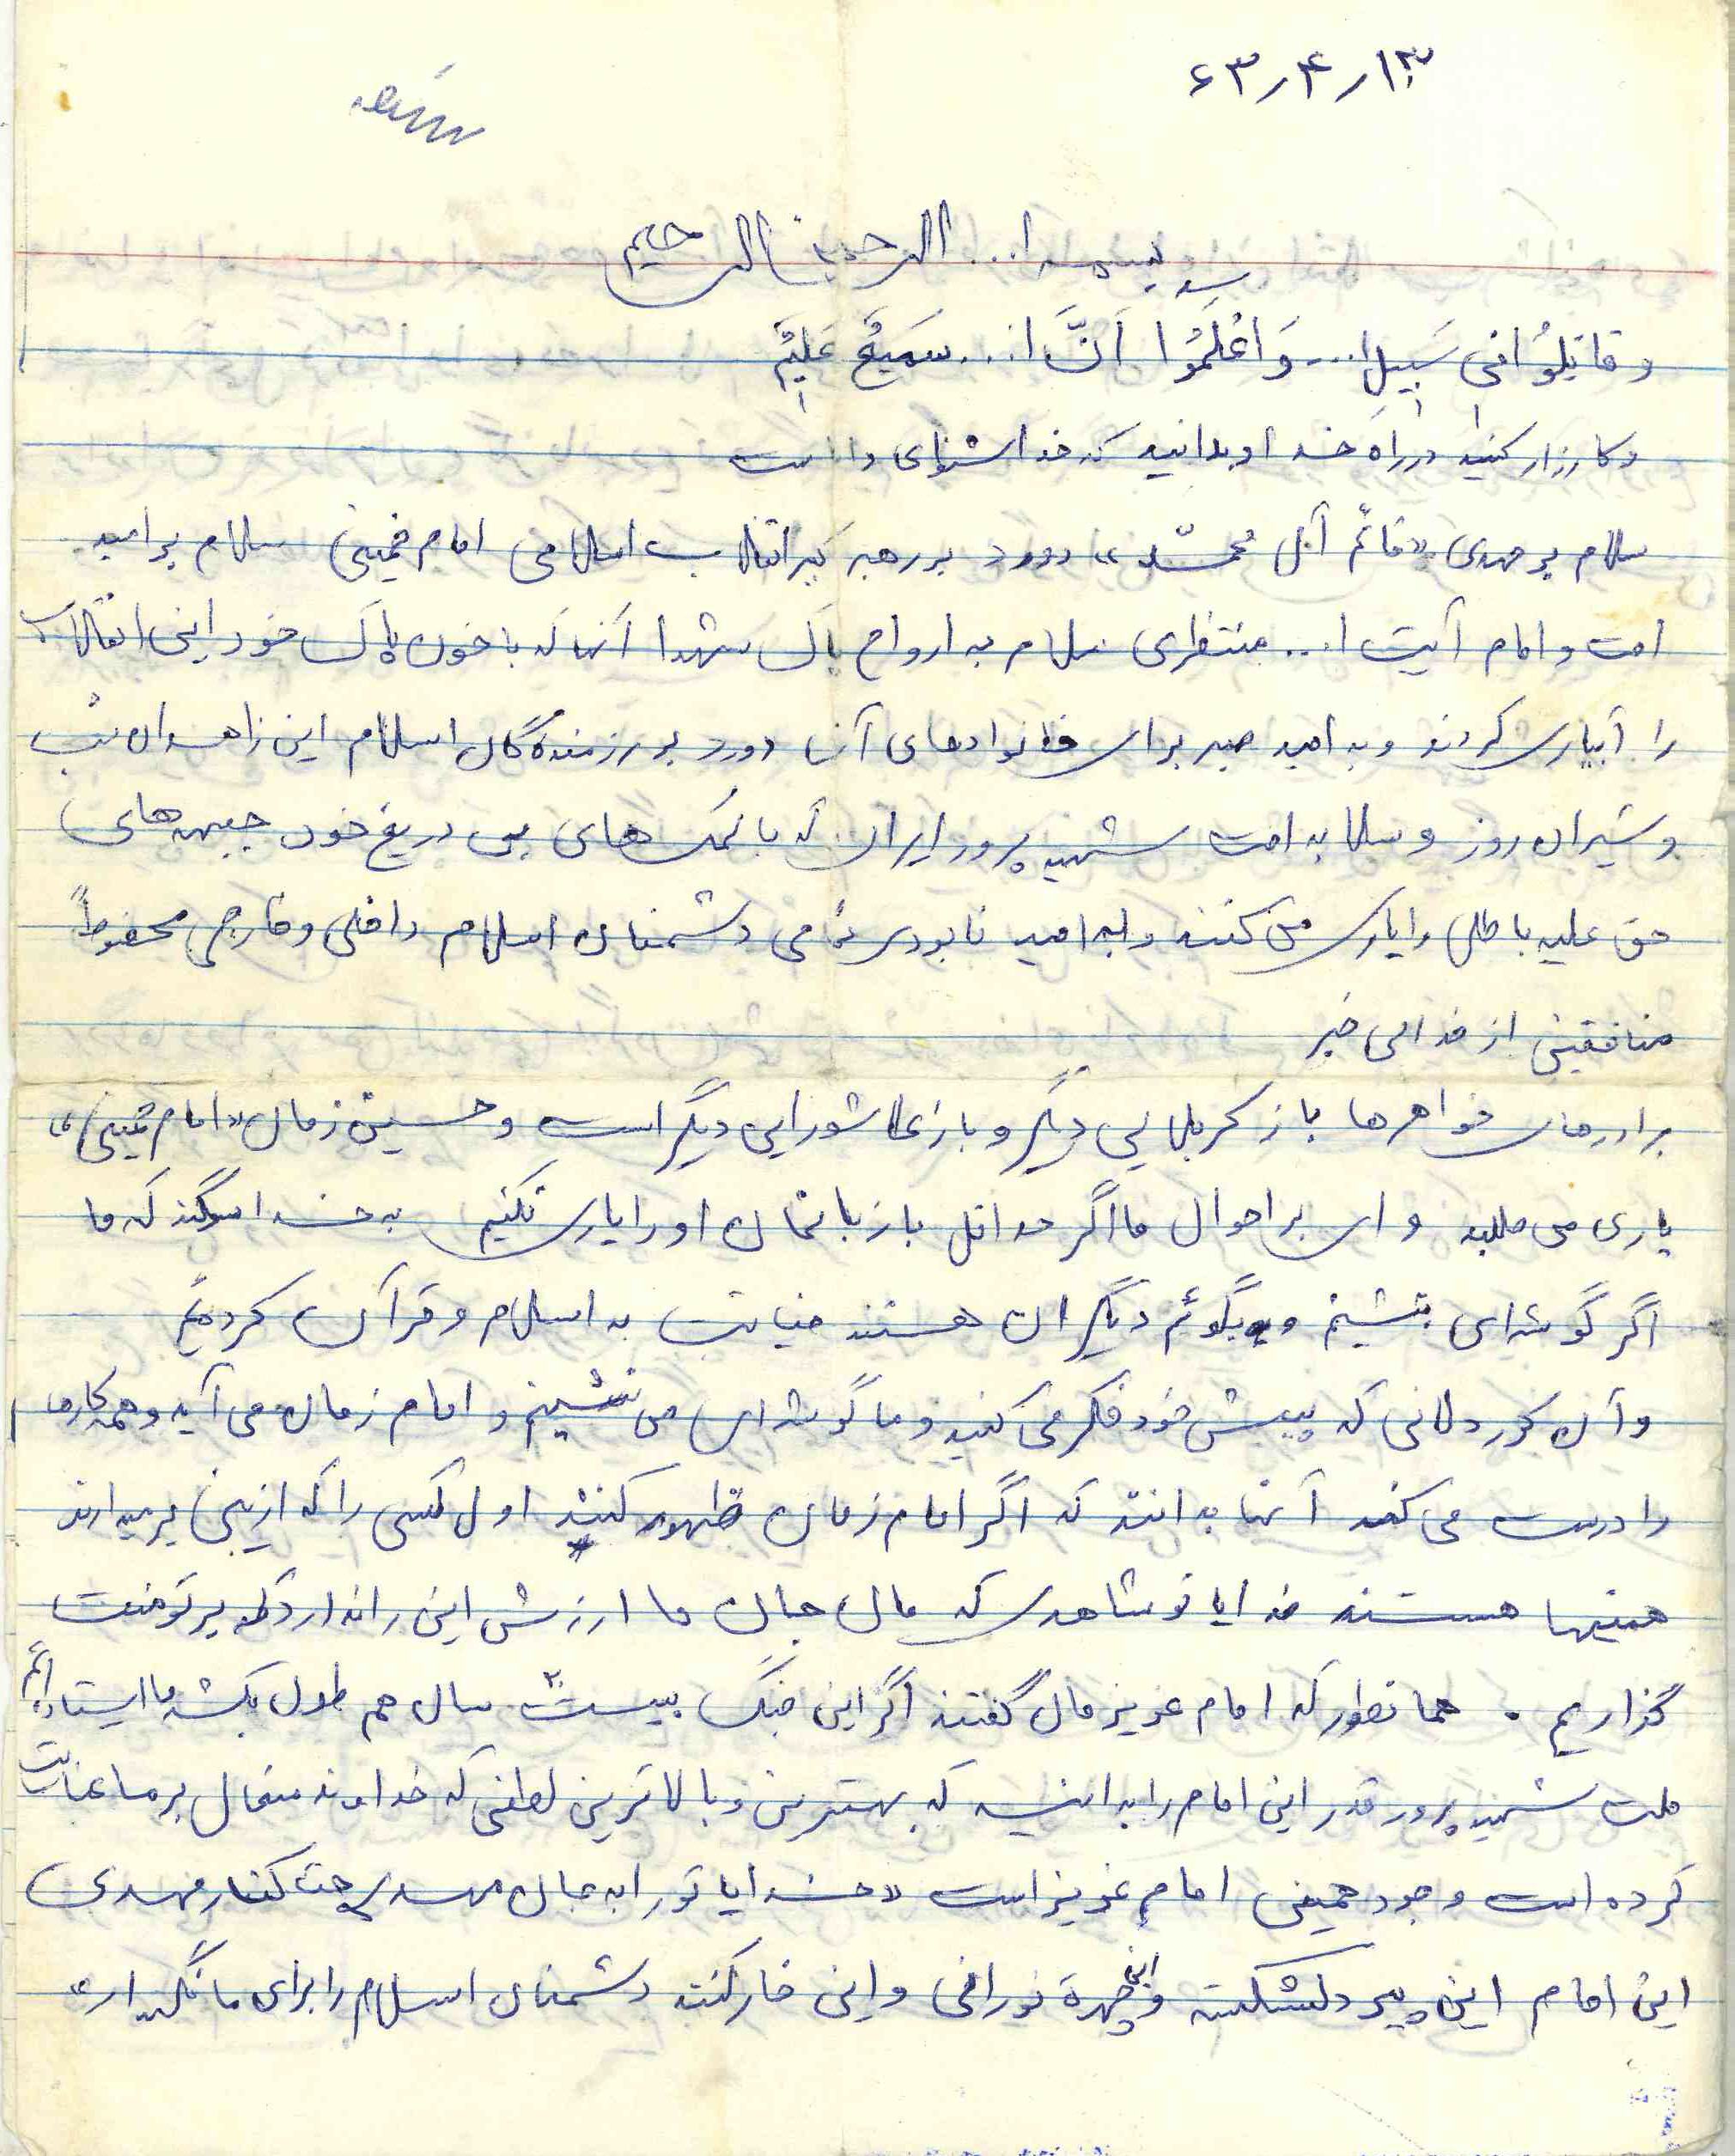 ۶۳٫۴٫۱۳
بسمه ا... الرحمن الرحیم
وقاتِلُوُا فی سَبیلِ ا... وَاعْلَمُوا اَنَّ ا... سَمیعُ عَلیمُ
وکارزار کنید در راه خدا و بدانید که خدا شنوای داناست
سلام بر مهدی «قائم آل محمّد» درود بر رهبر کبیر انقلاب اسلامی امام خمینی سلام بر امید
امت و امام آیت ا... منتظری سلام به ارواح پاک شهدا آنها که با خون پاک خود این انقلاب
را آبیاری کردند و به امید صبر برای خانوادهای آنها درود بر رزمندگان اسلام این زاهدان شب
و شیران روز و سلام به امت شهید پرور ایران که با کمک های بی دریغ خود جبهه های
حق علیه باطل را یاری می کنند و به امید نابودی تمامی دشمنان اسلام داخلی و خارجی مخصوطاً
منافقین از خدا بی خبر
برادرها خواهرها باز کربلایی دیگر و باز عاشورایی دیگر است و حسین زمان «امام خمینی»
یاری می طلبد وای بر احوال ما اگر حداقل با زبانمان او را یاری نکنیم به خدا سوگند که ما
اگر گوشه ای بنشینیم و بگوئم دیگران هستند خیانت به اسلام و قرآن کردیم
و آن کوردلانی که پیش خود فکر می کنید و ما گوشه ای می نشینیم و امام زمان می آید و همه کارها
را درست می کند آنها بدانند که اگر امام زمان ظهور کنند اول کسی را که از بین برمیدارند
همینها هستند خدایا تو شاهدی که مال جان ما ارزش این را ندارد که بر تو منت
گذاریم . همانطور که امام عزیزمان گفتند اگر این جنگ بیست سال هم طول بکشد ما ایستاده ائم
ملت شهید پرور قدر این امام را بدانید که بهترین و بالاترین لطفی که خداوند متعال بر ما عنایت
کرده است وجود همین امام عزیز است «خدایا تو را به جان مهدی حتی کنار مهدی
این امام این پیر دلشکسته و این چهرهٔ نورانی و این خار کننده دشمنان اسلام را برای ما نگهدار»